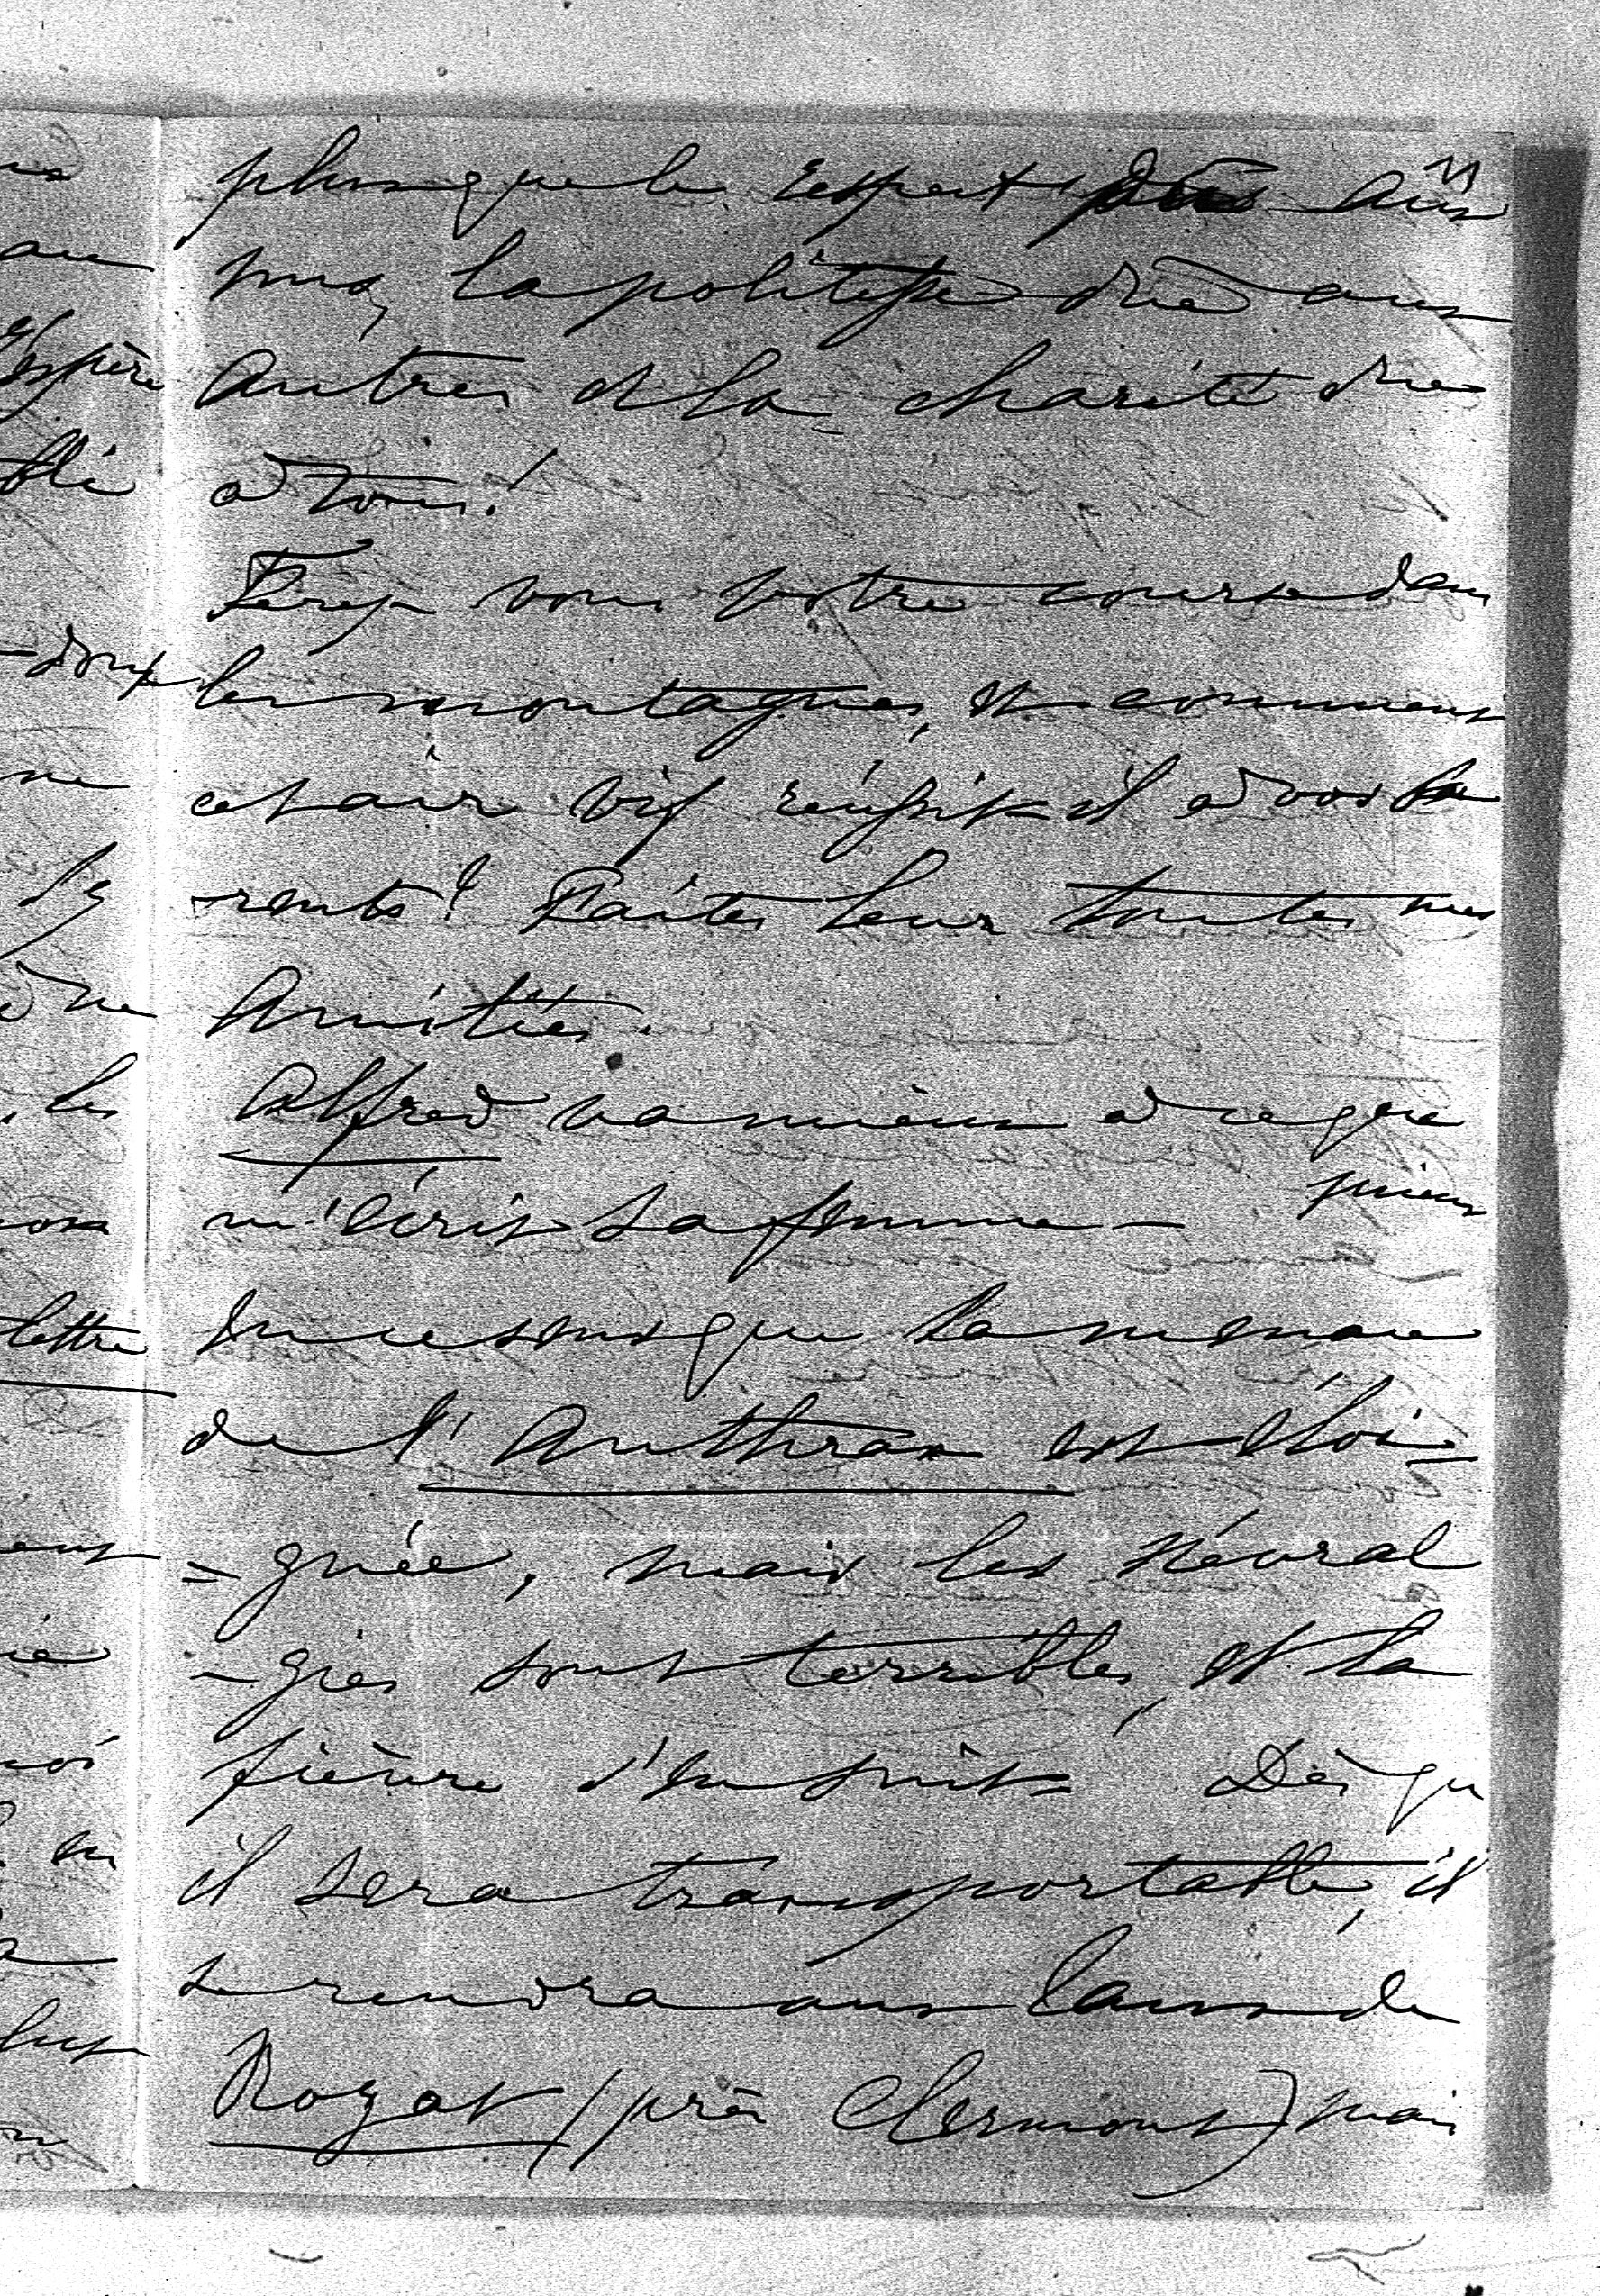 plus que le respect dû aux
uns, la politesse due aux
autres et la charité due
à tous!
Ferez vous votre course dans
les montagnes, et comment
cet air vif réussit-il à vos pa
-rents? Faites leur toutes mes
Amitiés.
Alfred va mieux à ce que
m'écrit sa femme — mieux
en ce sens que la menace
de l'Anthrax est éloi=
=gnée, mais les névral
-gies sont terribles, et la
fièvre s'en suit Dès qu
il sera transportable, il
se rendra aux Eaux de
Royat (près Clermont) mais